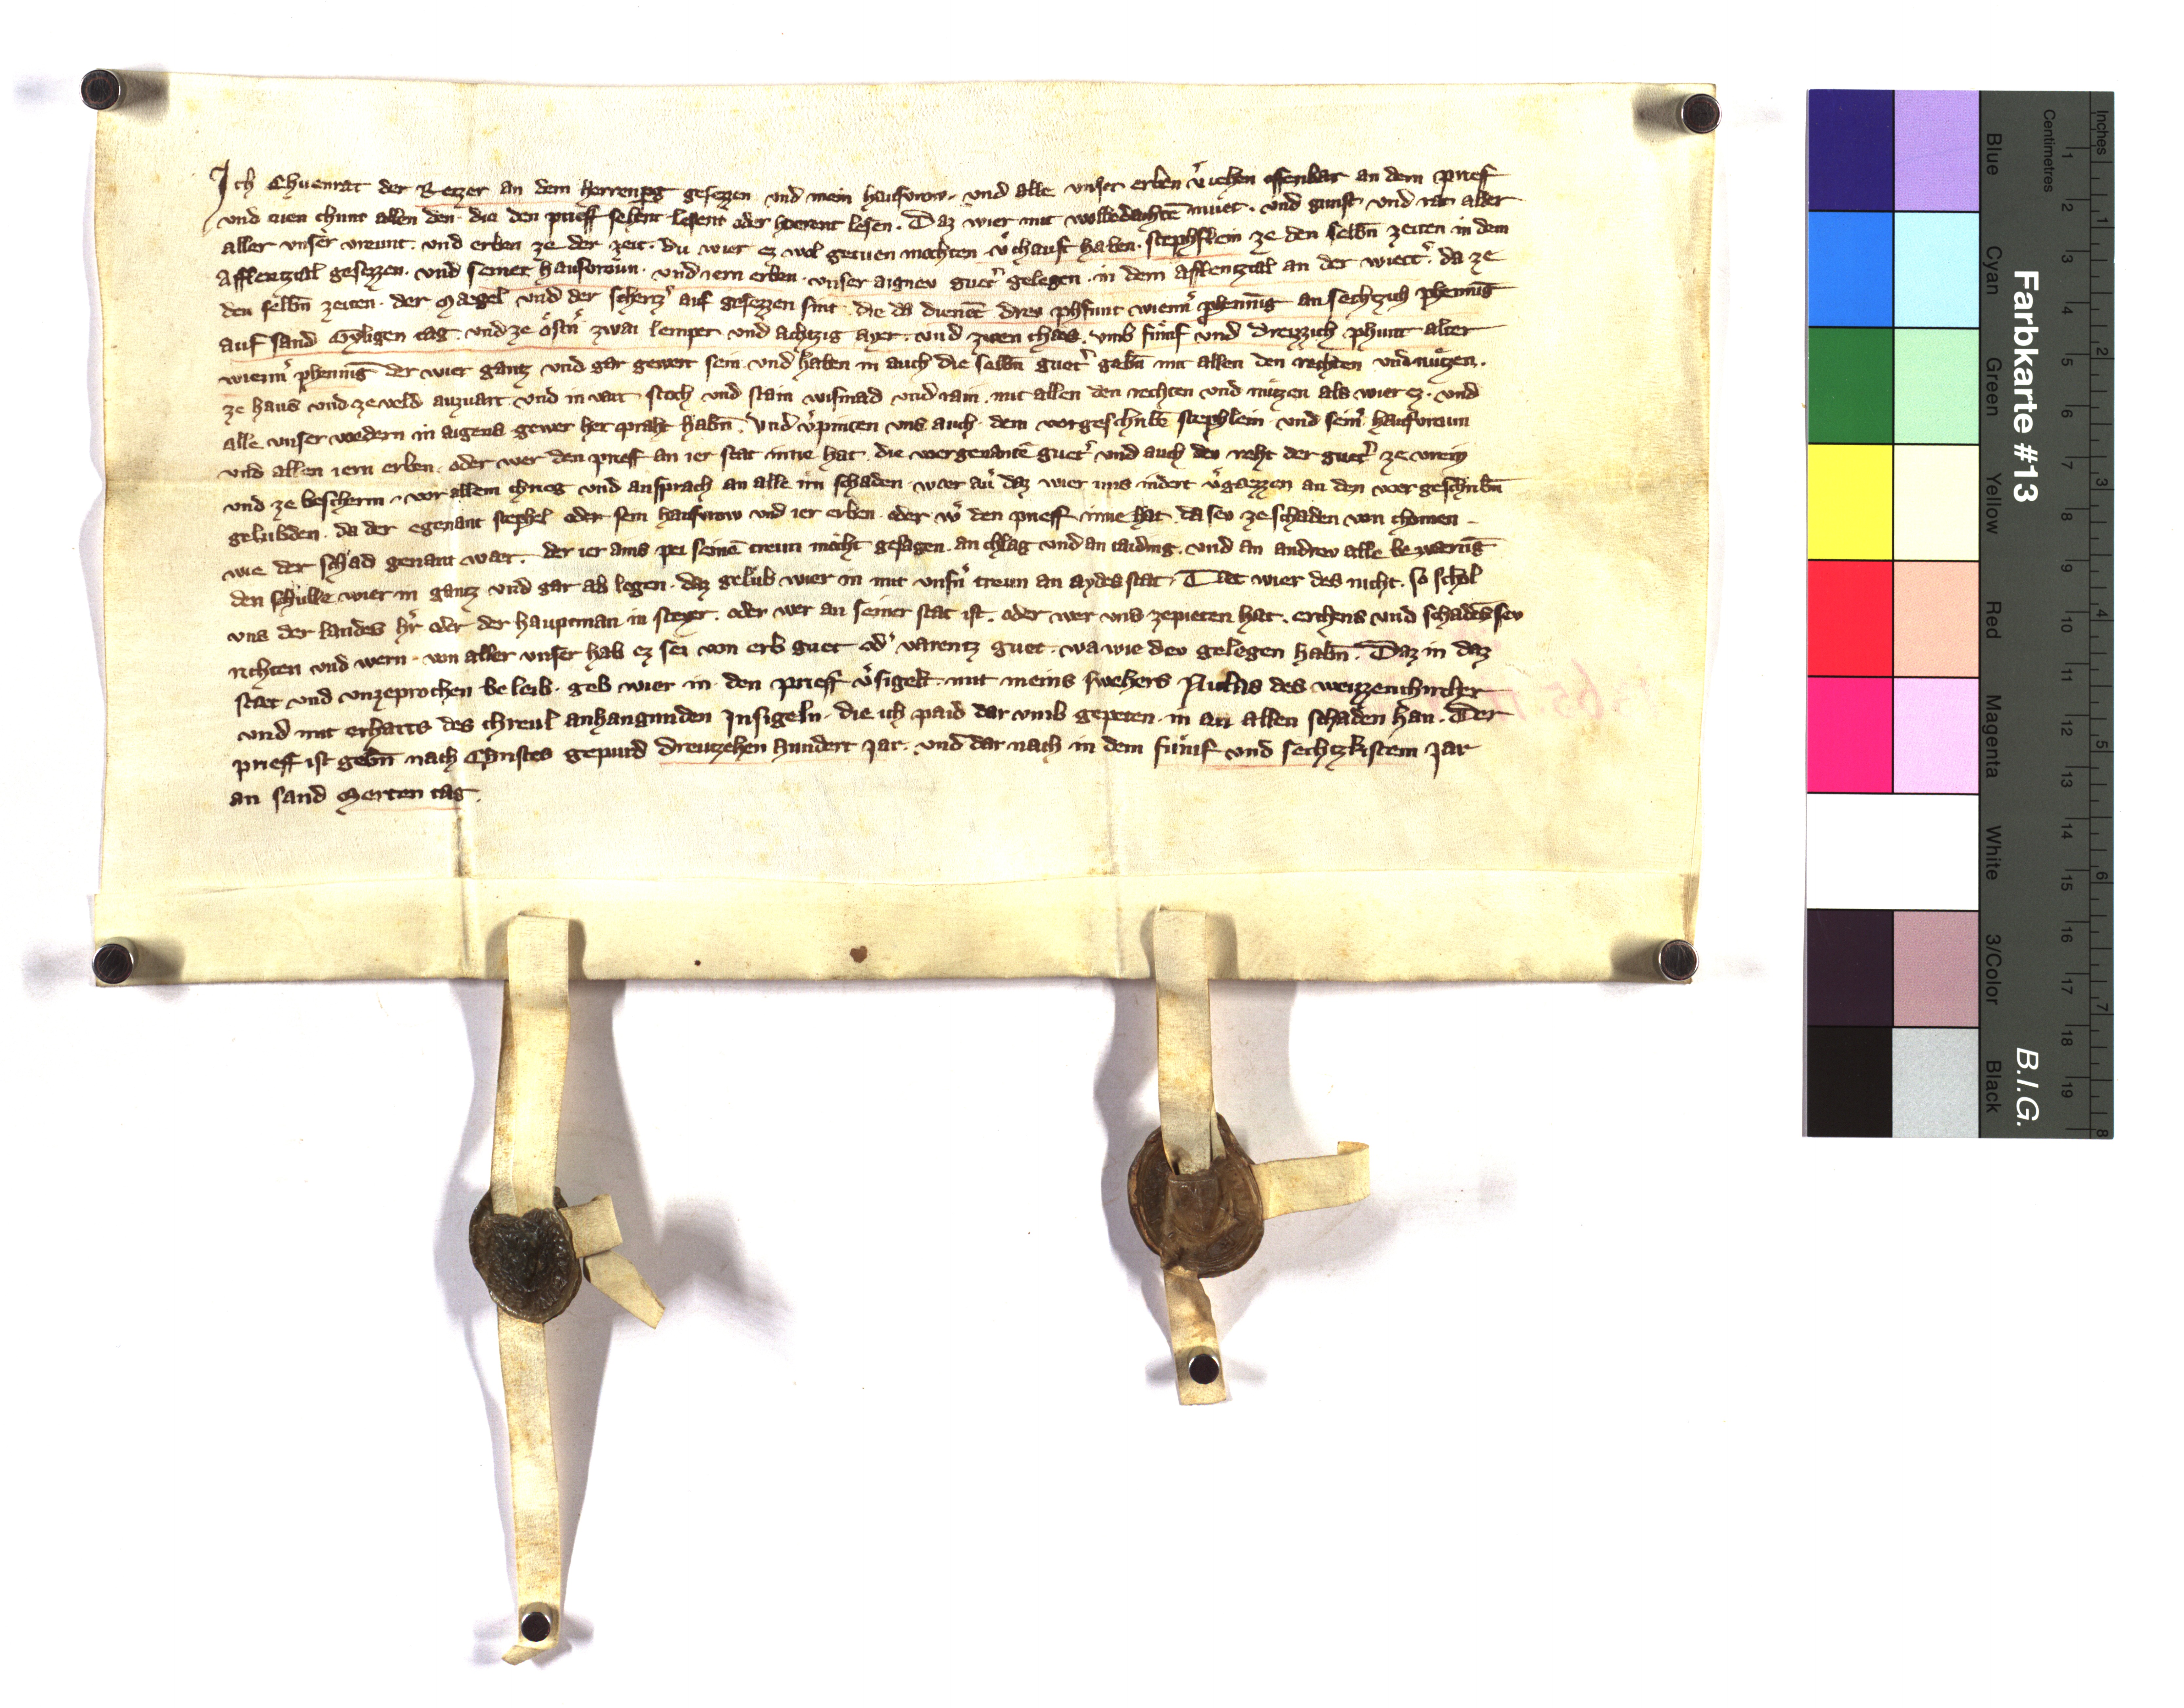 Ich Chuenrat der Retzer an dem Herrenperg gesezzen und mein hausvrow· und alle unser erben v̾iehen offenbar an dem prief
und tuen chunt allen den· die den prieff sehent lesent oder hoerent lesen· Daz wier mit wolbedachtē muet· und gunst und rat aller
aller unser vreunt· und erben ze der zeit· du wier ez wol getuen mochten· v̾chauft haben· stephflein ze den selbn̄ zeiten in dem
Afflentztal gesezzen· und seiner hausvroun· und iern erben· unser aignev guet̾ gelegen· in dem Afflentztal an der wiect̾· da ze
den selbn̄ zeiten· der Maegel und der schertz̾ auf gesezzen sint· die da dienēt drev phfunt wienn̾ phenning an sechtzich phennīg
auf sand Gyligen tag· und ze ostn̾ zwai lemper und achtzig ayer· und zwen chaes· umb fumf und dreyzzich phunt alter
wienn̾ phennīg der wier gantz und gar gewert sein· und haben in auch die selbn̄ guet̾ gebn̄ mit allen den rechten und nutzen·
ze haus und ze veld auzvart und invart stoch und stain wismad und rain· mit allen den rechten und nutzen als wier ez· und
alle unser vordern in aigens gewer her praht habn̄· und v̾pinten uns auch· dem vorgeschribē stephlein· und sein̾ hausvroun
und allen iern erben· oder wer den prieff an ier stat inne hat· die vorgenantē guet̾ und auch dev reht der guet̾ ze vrein
und ze bescherm· vor allem chrieg und ansprach an alle irn schaden· waer au̾ daz wier uns indert v̾gaezzen an den vorgeschribn̄
gelubden· da der egenant stephel oder sein hausvrow und ier erben· oder w̾ den prieff inne hat· da sev ze schaden von chomen
wie der schad genant waer· der ier ains pei seinē treun mocht gesagen· an chlag und an taiding· und an andrev alle bezwaerūg
den schulle wier in gantz und gar ab legen· daz gelub wier in mit unsn̾ treun an aydes stat· Taet wier des nicht· so schol
uns der landes hr̾ oder der hauptman in steyer· oder wer an seiner stat ist· oder wer uns ze pieten hat· erchens und schadēs sev
richten und wern· von aller unser hab ez sei von erb guet od̾ varentz guet· wa wie dev gelegen habn̄· Daz in daz
staet und unzeprochen beleib· geb wier in· den prieff v̾sigelt· mit meins swehers Niclas des weizzenchircher
und mit erharts des chreul anhangunden Insigeln· die ich paid dar umb gepeten· in an allen schaden han· Der
prieff ist gebn̄ nach Christes gepurd dreutzehen hundert jar· und dar nach in dem fumf und sechtzkistem Jar
an sand Merten tag·
Farbkarte #13
B.I.G.
Inches
Centimetres
Blue
Cyan
Green
Yellow
Red
Magenta
White
3/Color
Black
1 2 3 4 5 6 7 8 9 10 11 12 13 14 15 16 17 18 19
1 2 3 4 5 6 7 8